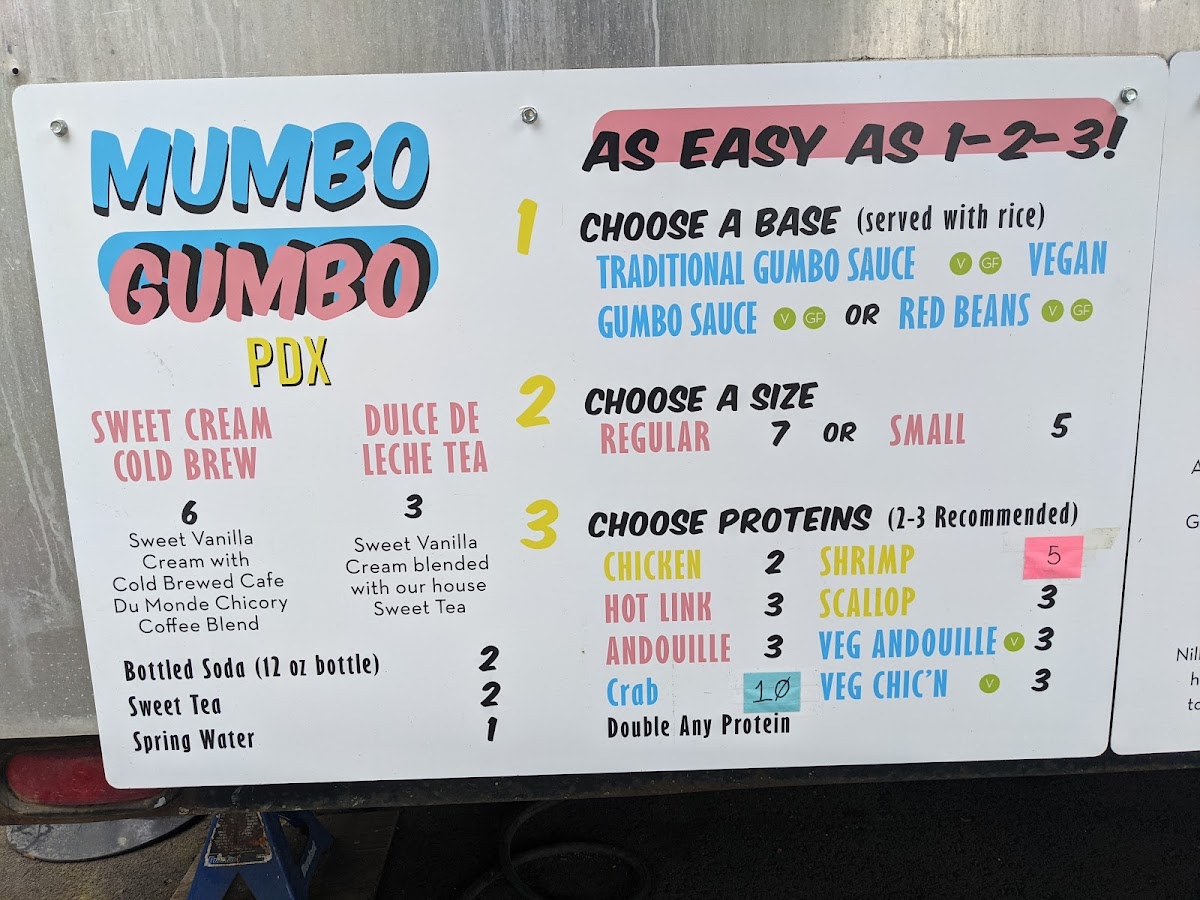 MUMBO
GUMBO
PDX
SWEET CREAM
COLD BREW
6
Sweet Vanilla
Cream with
Cold Brewed Cafe
Du Monde Chicory
Coffee Blend
DULCE DE
LECHE TEA
3
Sweet Vanilla
Cream blended
with our house
Sweet Tea
Bottled Soda (12 oz bottle) 2
Sweet Tea 2
Spring Water 1
AS EASY AS 1-2-3!
1 CHOOSE A BASE (served with rice)
TRADITIONAL GUMBO SAUCE V GF VEGAN
GUMBO SAUCE V GF OR RED BEANS V GF
2 CHOOSE A SIZE
REGULAR 7 OR SMALL 5
3 CHOOSE PROTEINS (2-3 Recommended)
CHICKEN 2 SHRIMP 5
HOT LINK 3 SCALLOP 3
ANDOUILLE 3 VEG ANDOUILLE V 3
Crab 10 VEG CHIC'N V 3
Double Any Protein